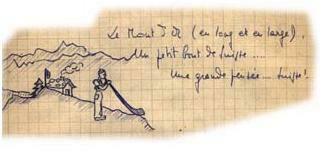 Le Mont d'Or (en long et en large).
Un petit bout de Suisse....
Une grande pensée.... Suisse!